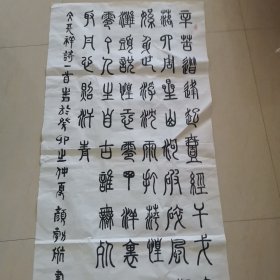 辛苦遭逢起壹經干戈
落四周星山河破碎風
絮身世浮沉雨打萍惶
灘頭說惶恐零丁洋裏
零丁人生自古誰無
取丹心照汗青
文天祥詩一首書於癸卯之仲夏顏勤書